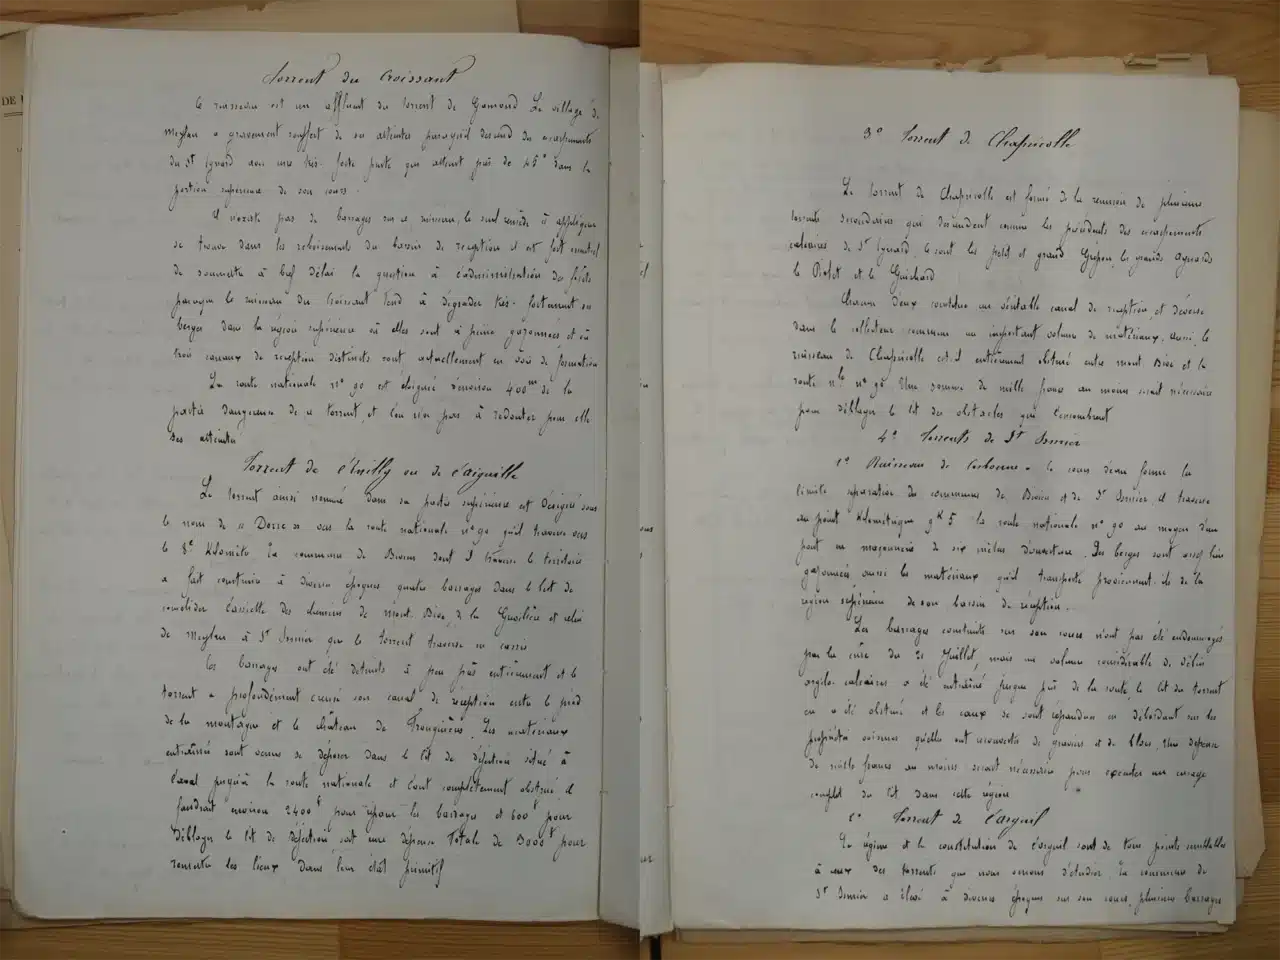 DE
Torrent du Croissant
Ce ruisseau est un affluent du torrent de Gamond Le village de
Meylan a gravement souffert de ses atteintes parcequ'il descend des escarpements
du St Eynard avec une très forte pente qui atteint près de 45° dans la
portion supérieure de son cours.
Il n'existe pas de barrages sur ce ruisseau, le seul remède à appliquer
se trouve dans les reboisements du bassin de reception il est fort
de soumettre à bref délai la question à l'administration des forêts
parceque le ruisseau du Croissant tend à dégrader très fortement ses
berges dans la région supérieure où elles sont à peine gazonnées et où
trois canaux de réception distincts sont actuellement en voie de formation
La route nationale n° 90 est éloignée d'environ 400m de la
partie dangereuse de ce torrent, et l'on n'a pas à redouter pour elle
ses atteintes
Torrent de ou de l'aiguille
Le torrent ainsi nommé dans sa partie supérieure est désigné sous
le nom de « Doree » vers la route nationale n° 90 qu'il traverse vers
le 8e Kilomètre La commune de Biviers dont il traverse le territoire
a fait construire à diverses époques quatre barrages dans le but de
consolider l'assiette des chemins de Mont-Bive, de la et celui
de Meylan à St Ismier que le torrent traverse en cassis
Ces barrages ont été détruits à peu près entièrement et le
torrent a profondément creusé son canal de réception entre le pied
de la montagne et le château de Franquières. Les matériaux
entraînés sont venus se déposer dans le lit de déjection situé à
l'aval jusqu'à la route nationale et l'ont complètement obstrué, il
faudrait environ 2400f pour réparer les barrages et 600f pour
déblayer le lit de déjection soit une dépense Totale de 3000f pour
remettre les lieux dans leur état primitif
3° Torrent de Chapicolle
Le torrent de Chapicolle est formé de la réunion de plusieurs
torrents secondaires qui descendent comme les précédents des escarpements
calcaires de St Eynard, ce sont les petit et grand les grands
le et le Guichard
Chacun d'eux constitue un véritable canal de réception, et déverse
dans le collecteur commun un important volume de matériaux, aussi le
ruisseau de Chapicolle est-il entièrement obstrué entre Mont Bive et la
route nle n° 90. Une somme de mille francs au moins serait nécessaire
pour déblayer le lit des obstacles qui l'encombrent
4° Torrents de St Ismier
1° Ruisseau de Corbonne. Ce cours d'eau forme la
limite séparative des communes de Biviers et de St Ismier, il traverse
au point Kilométrique 9k5 la route nationale n° 90 au moyen d'un
pont en maçonnerie de six mètres d'ouverture. Ses berges sont assez bien
gazonnées aussi les matériaux qu'il transporte proviennent-ils de la
région supérieure de son bassin de réception.
Les barrages construits sur son cours n'ont pas été endommagés
par la crue du 21 Juillet, mais un volume considérable de débris
argilo-calcaires a été entraîné jusque près de la route, le lit du torrent
en a été obstrué et les eaux se sont épandues en débordant sur les
propriétés voisines qu'elles ont recouvertes de graviers et de blocs. Une dépense
de mille francs au moins serait nécessaire pour exécuter un curage
complet du lit dans cette région
2° Torrent de l'arguil
Le régime et la constitution de l'arguil sont de tous points semblables
à ceux des torrents que nous venons d'étudier. La commune de
St Ismier a élevé à diverses époques sur son cours, plusieurs barrages